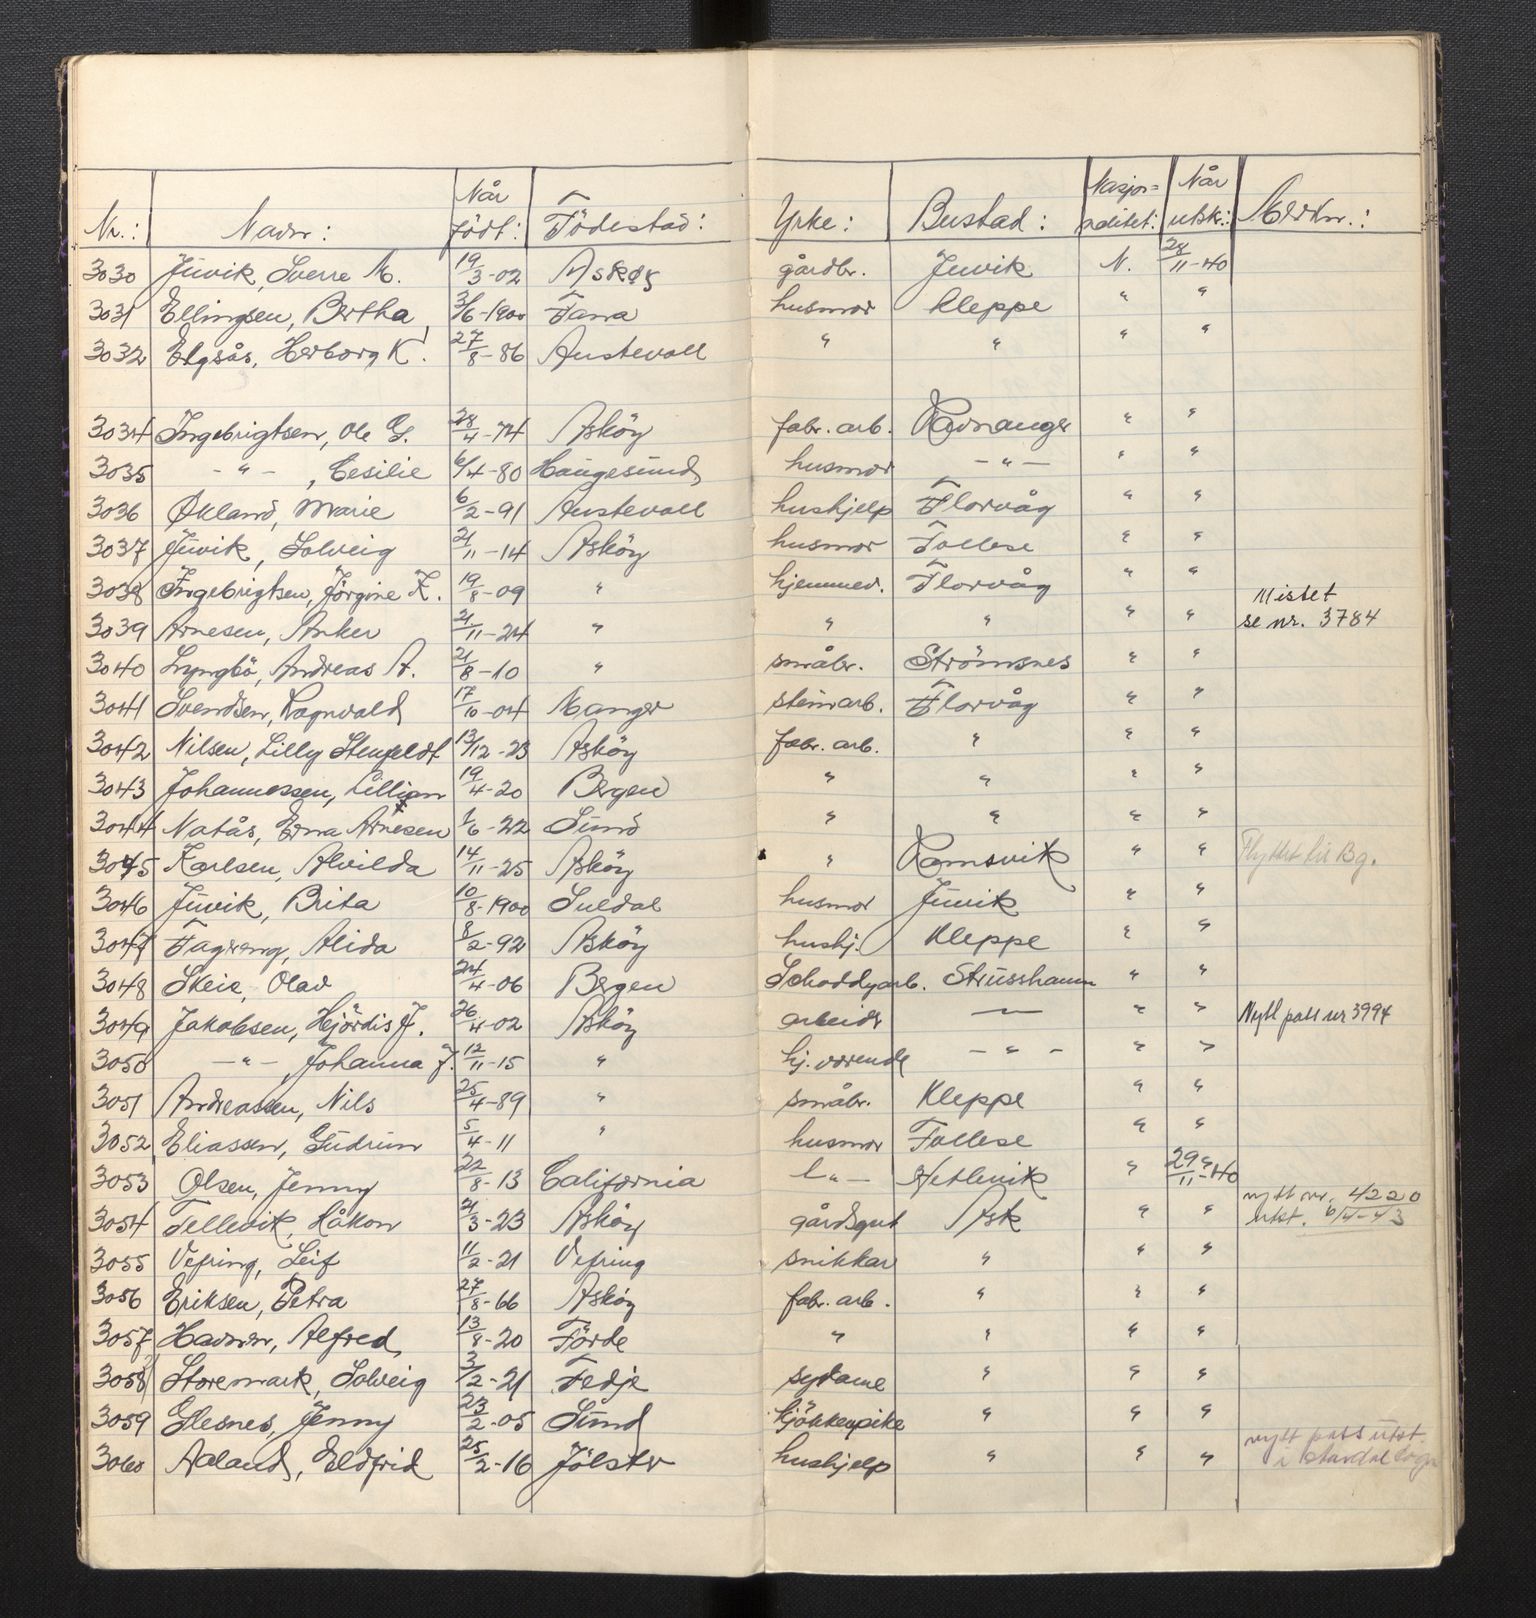 Nr.: Navn: Når födt: Födestad: Yrke: Bustad: Nasjonalitet: Når utsk.: Merkn.:
3030 Juvik, Sverre M. 19/3-02 Askøy gårdbr. Juvik N. 28/11-40
3031 Ellingsen, Bertha 3/6-1900 Fana husmor Kleppe " "
3032 Elgsås, Herborg K. 27/8-86 Austevoll " " " "
3034 Ingebrigtsen, Ole G. 28/4-74 Asköy fabr. arb. Ravnanger " "
3035 - " - , Cesilie 6/4-80 Haugesund husmor - " - " "
3036 Økland, Marie 6/2-91 Austevoll hushjelp Florvåg " "
3037 Juvik, Solveig 21/11-14 Asköy husmor Follese " "
3038 Ingebrigtsen, Jörgine K. 19/8-09 " hjemmev. Florvåg " "
3039 Arnesen, Anker 21/11-24 " " " " " Mistet se nr. 3784
3040 Lyngbö, Andreas A. 21/8-10 " småbr. Strömsnes " "
3041 Svendsen, Ragnvald 17/10-04 Manger steinarb. Florvåg " "
3042 Nilsen, Lilly Stenfeldt 13/12-23 Asköy fabr. arb. " " "
3043 Johannessen, Lillian 19/4-20 Bergen " " " "
3044 Natås, Erna Arnesen 1/6-22 Sund " " " "
3045 Karlsen, Alvilda 14/11-25 Asköy " Ramsvik " " Flyttet til Bg.
3046 Juvik, Brita 10/8-1900 Suldal husmor Juvik " "
3047 Fagreng, Alida 8/2-92 Asköy hushj. Kleppe " "
3048 Skeie, Olav 24/4-06 Bergen Schoddyarb. Strusshamn " "
3049 Jakobsen, Hjördis J. 26/4-02 Asköy arbeidr — " " Nytt pass nr 3994
3050 - " - , Johanna J. 12/11-15 " hj. værende - " - " "
3051 Andreassen, Nils 25/4-89 " småbr. Kleppe " "
3052 Eliassen, Gudrun 5/4-11 " husmor Follese " "
3053 Olsen, Jenny 22/8-13 California - " - Hetlevik " 29/11-40
3054 Tellevik, Håkon 21/3-23 Asköy gårdsgut Ask " " nytt nr. 4220 utst. 6/4-43
3055 Vefring, Leif 11/2-21 Vefring snikkar " " "
3056 Eriksen, Petra 27/8-66 Asköy fabr. arb. " " "
3057 Havnen, Alfred 13/8-20 Förde " " " "
3058 Storemark, Solveig 3/2-21 Fedje sydame " " "
3059 Glesnes, Jenny 23/2-05 Sund kjökkenpike " " "
3060 Aaland, Eldfrid 25/2-16 Jölster hushjelp " " " nytt pass utst. i